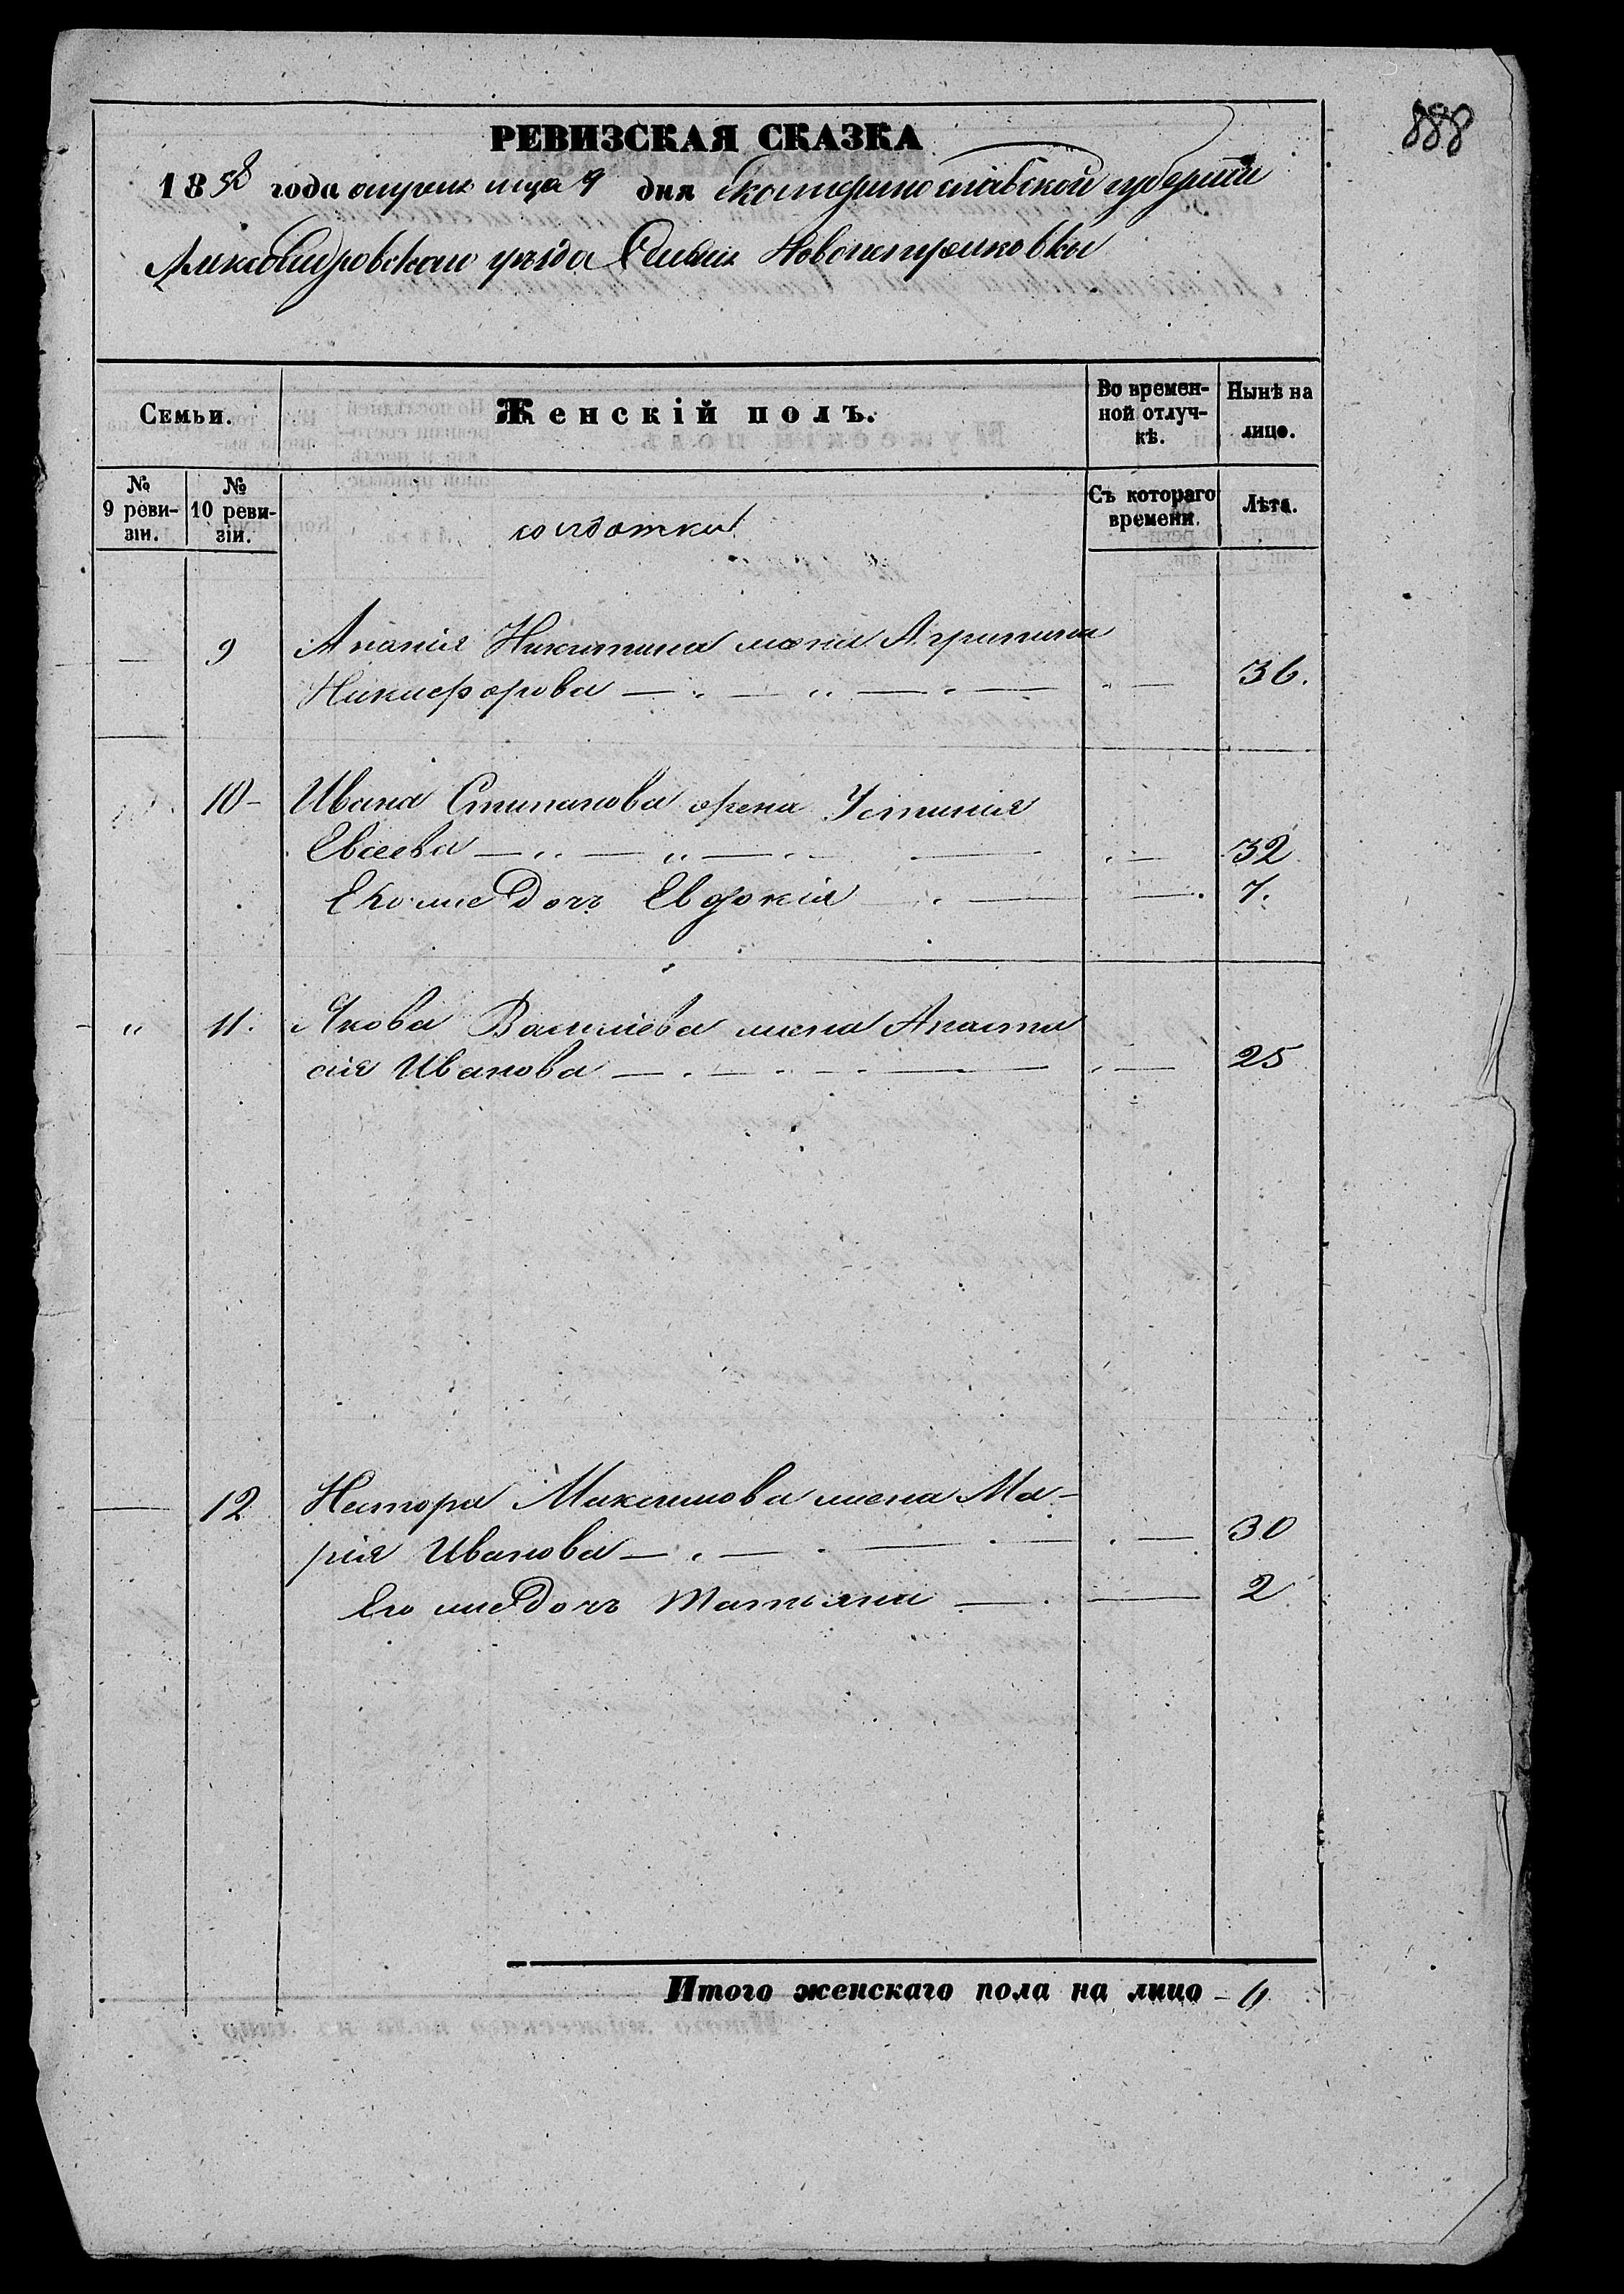 888
РЕВИЗСКАЯ СКАЗКА
1858 года апреля мца 9 дня Екатеринославской губернии
Александровскаго уезда Селения Новопетриковки
Семьи.
Женскій полъ.
Во времен-
ной отлуч-
кѣ.
Нынѣ на
лицо.
№
9 реви-
зіи.
№
10 реви-
зіи.
солдатки
Съ котораго
времени.
Лѣта.
— 9 Анания Никитина жена Агрипина
Никифорова — „ — „ — „ — „ — 36.
10 Ивана Степанова жена Устиния
Евсеева — „ — „ — „ — 32
Его же дочь Евдокия — . 7.
„ 11. Якова Василиева жена Анаста
сия Иванова — . — 25
— 12 Нестора Максимова жена Ма-
рия Иванова — . — 30
Его же дочь Татьяна — . — 2
Итого женскаго пола на лицо - 6